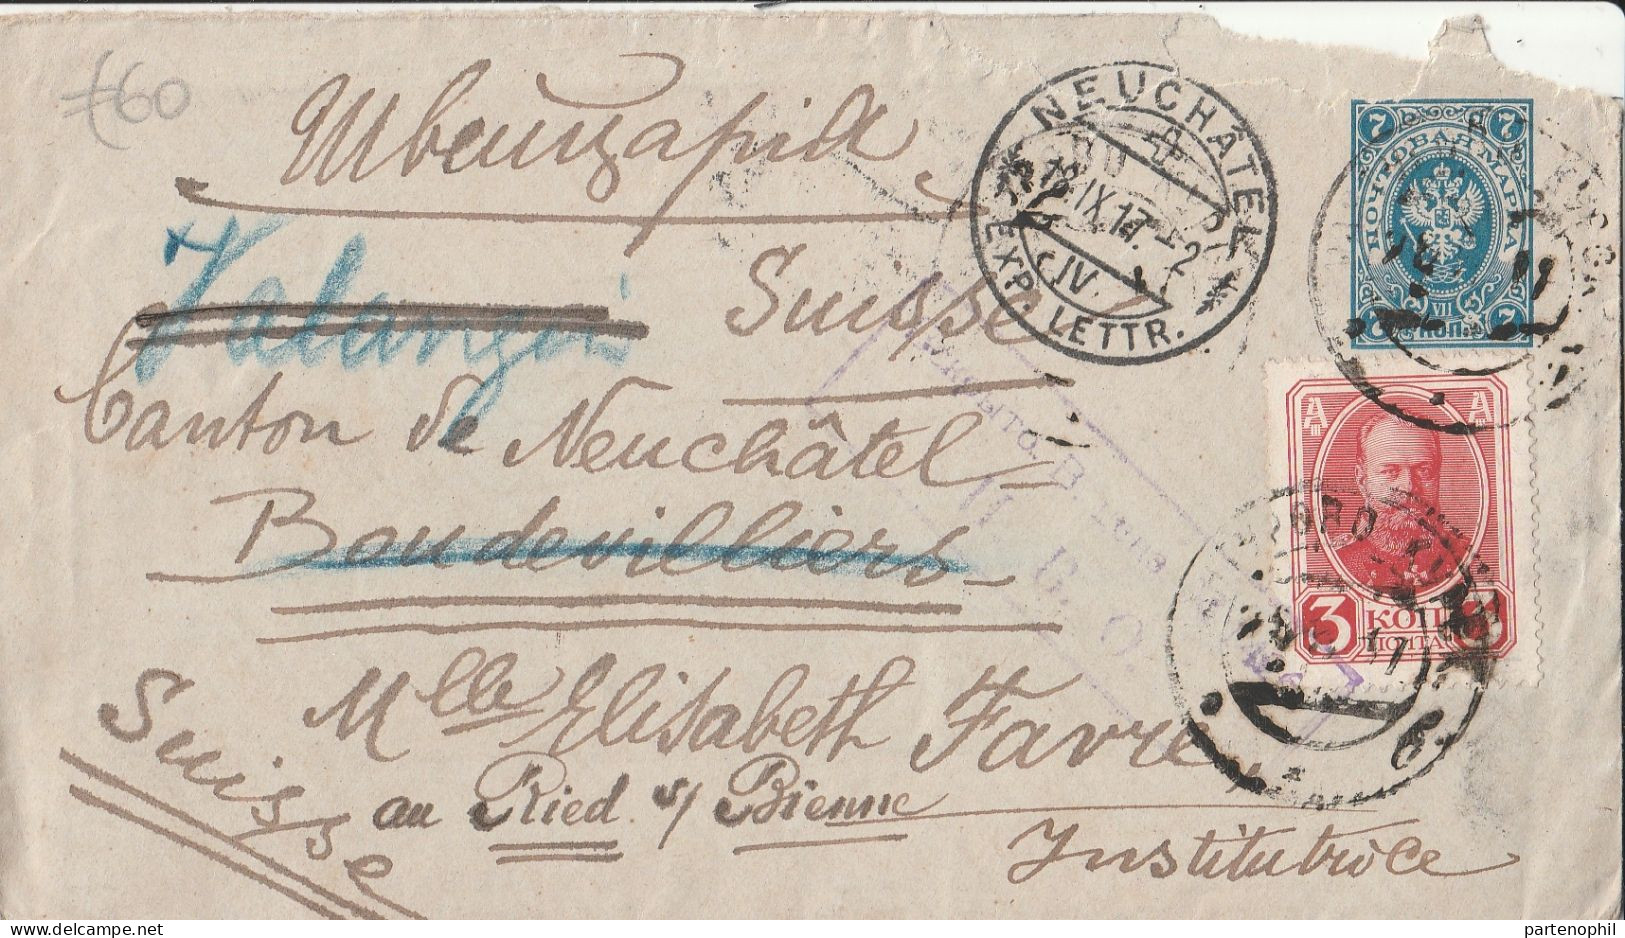 £60
Швейцарія
NEUCHÂTEL
12.IX.17.
IV.
EXP. LETTR.
ПОЧТОВАЯ МАРКА
7 7
VII
7 КОП. 7
Valangin
Suisse
Canton de Neuchâtel
Boudevilliers
3 КОП
ПОЧТА
Mlle Elisabeth Favre,
au Ried s/ Bienne
Suisse
Institutrice
partenophil